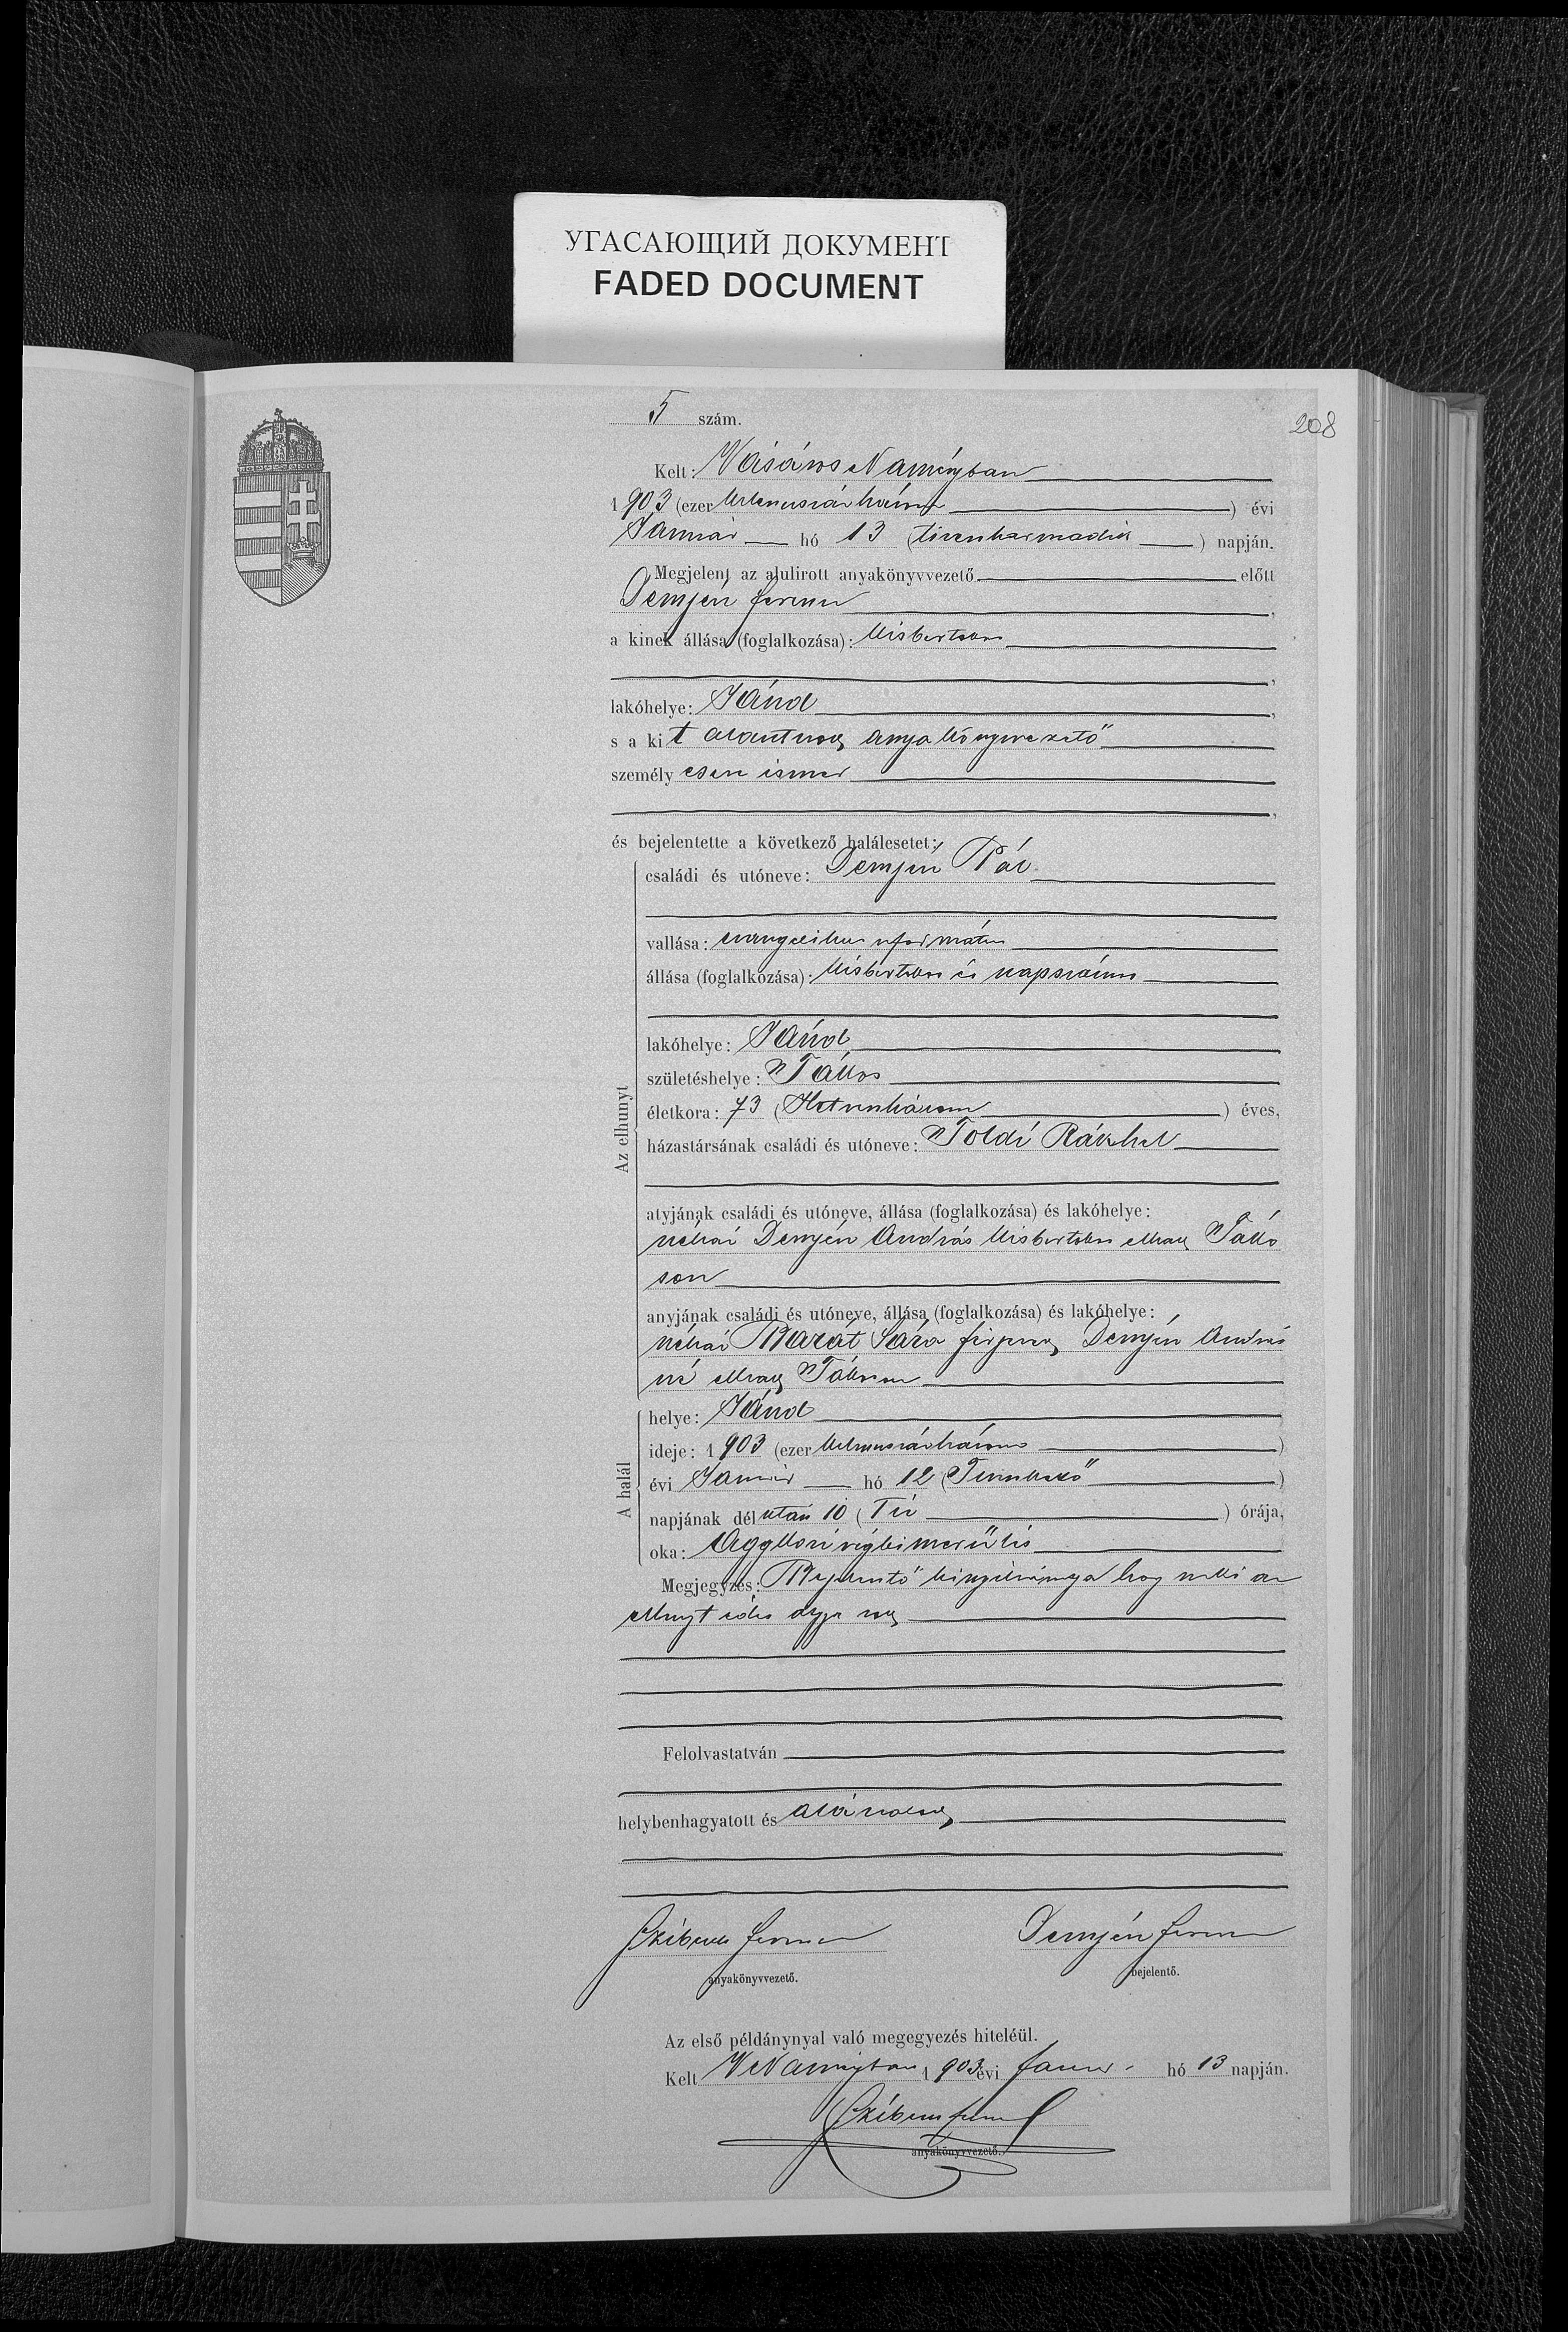 УГАСАЮЩИЙ ДОКУМЕНТ
FADED DOCUMENT
5 szám.
208
Kelt: Vásáros Naményban
1903 (ezer kilenczszázhárom) évi
Január hó 13 (tizenharmadik) napján.
Megjelent az alulirott anyakönyvvezető előtt
Demjén Ferencz,
a kinek állása (foglalkozása): kisbirtokos
lakóhelye: Jánd,
s a kit alantirott anyakönyvvezető
személyesen ismer
és bejelentette a következő halálesetet:
Az elhunyt
családi és utóneve: Demjén Pál
vallása: evangelikus református
állása (foglalkozása): kisbirtokos és napszámos
lakóhelye: Jánd
születéshelye: Tákos
életkora: 73 (Hetvenhárom) éves,
házastársának családi és utóneve: Toldi Rákhel
atyjának családi és utóneve, állása (foglalkozása) és lakóhelye:
néhai Demjén András kisbirtokos elhalt Táko
son
anyjának családi és utóneve, állása (foglalkozása) és lakóhelye:
néhai Barát Sára férjezett Demjén András
né elhalt Tákoson
A halál
helye: Jánd
ideje: 1903 (ezer kilenczszázhárom)
évi Január hó 12 (Tizenkettő)
napjának délután 10 (Tíz) órája,
oka: Aggkori végkimerülés
Megjegyzés: Bejelentő kinyilvánítja hogy neki az
elhunyt édes atyja volt
Felolvastatván
helybenhagyatott és aláíratott
Ferencz
anyakönyvvezető.
Demjén Ferencz
bejelentő.
Az első példánynyal való megegyezés hiteléül.
Kelt V Naményban 1903 évi Január hó 13 napján.
anyakönyvvezető.